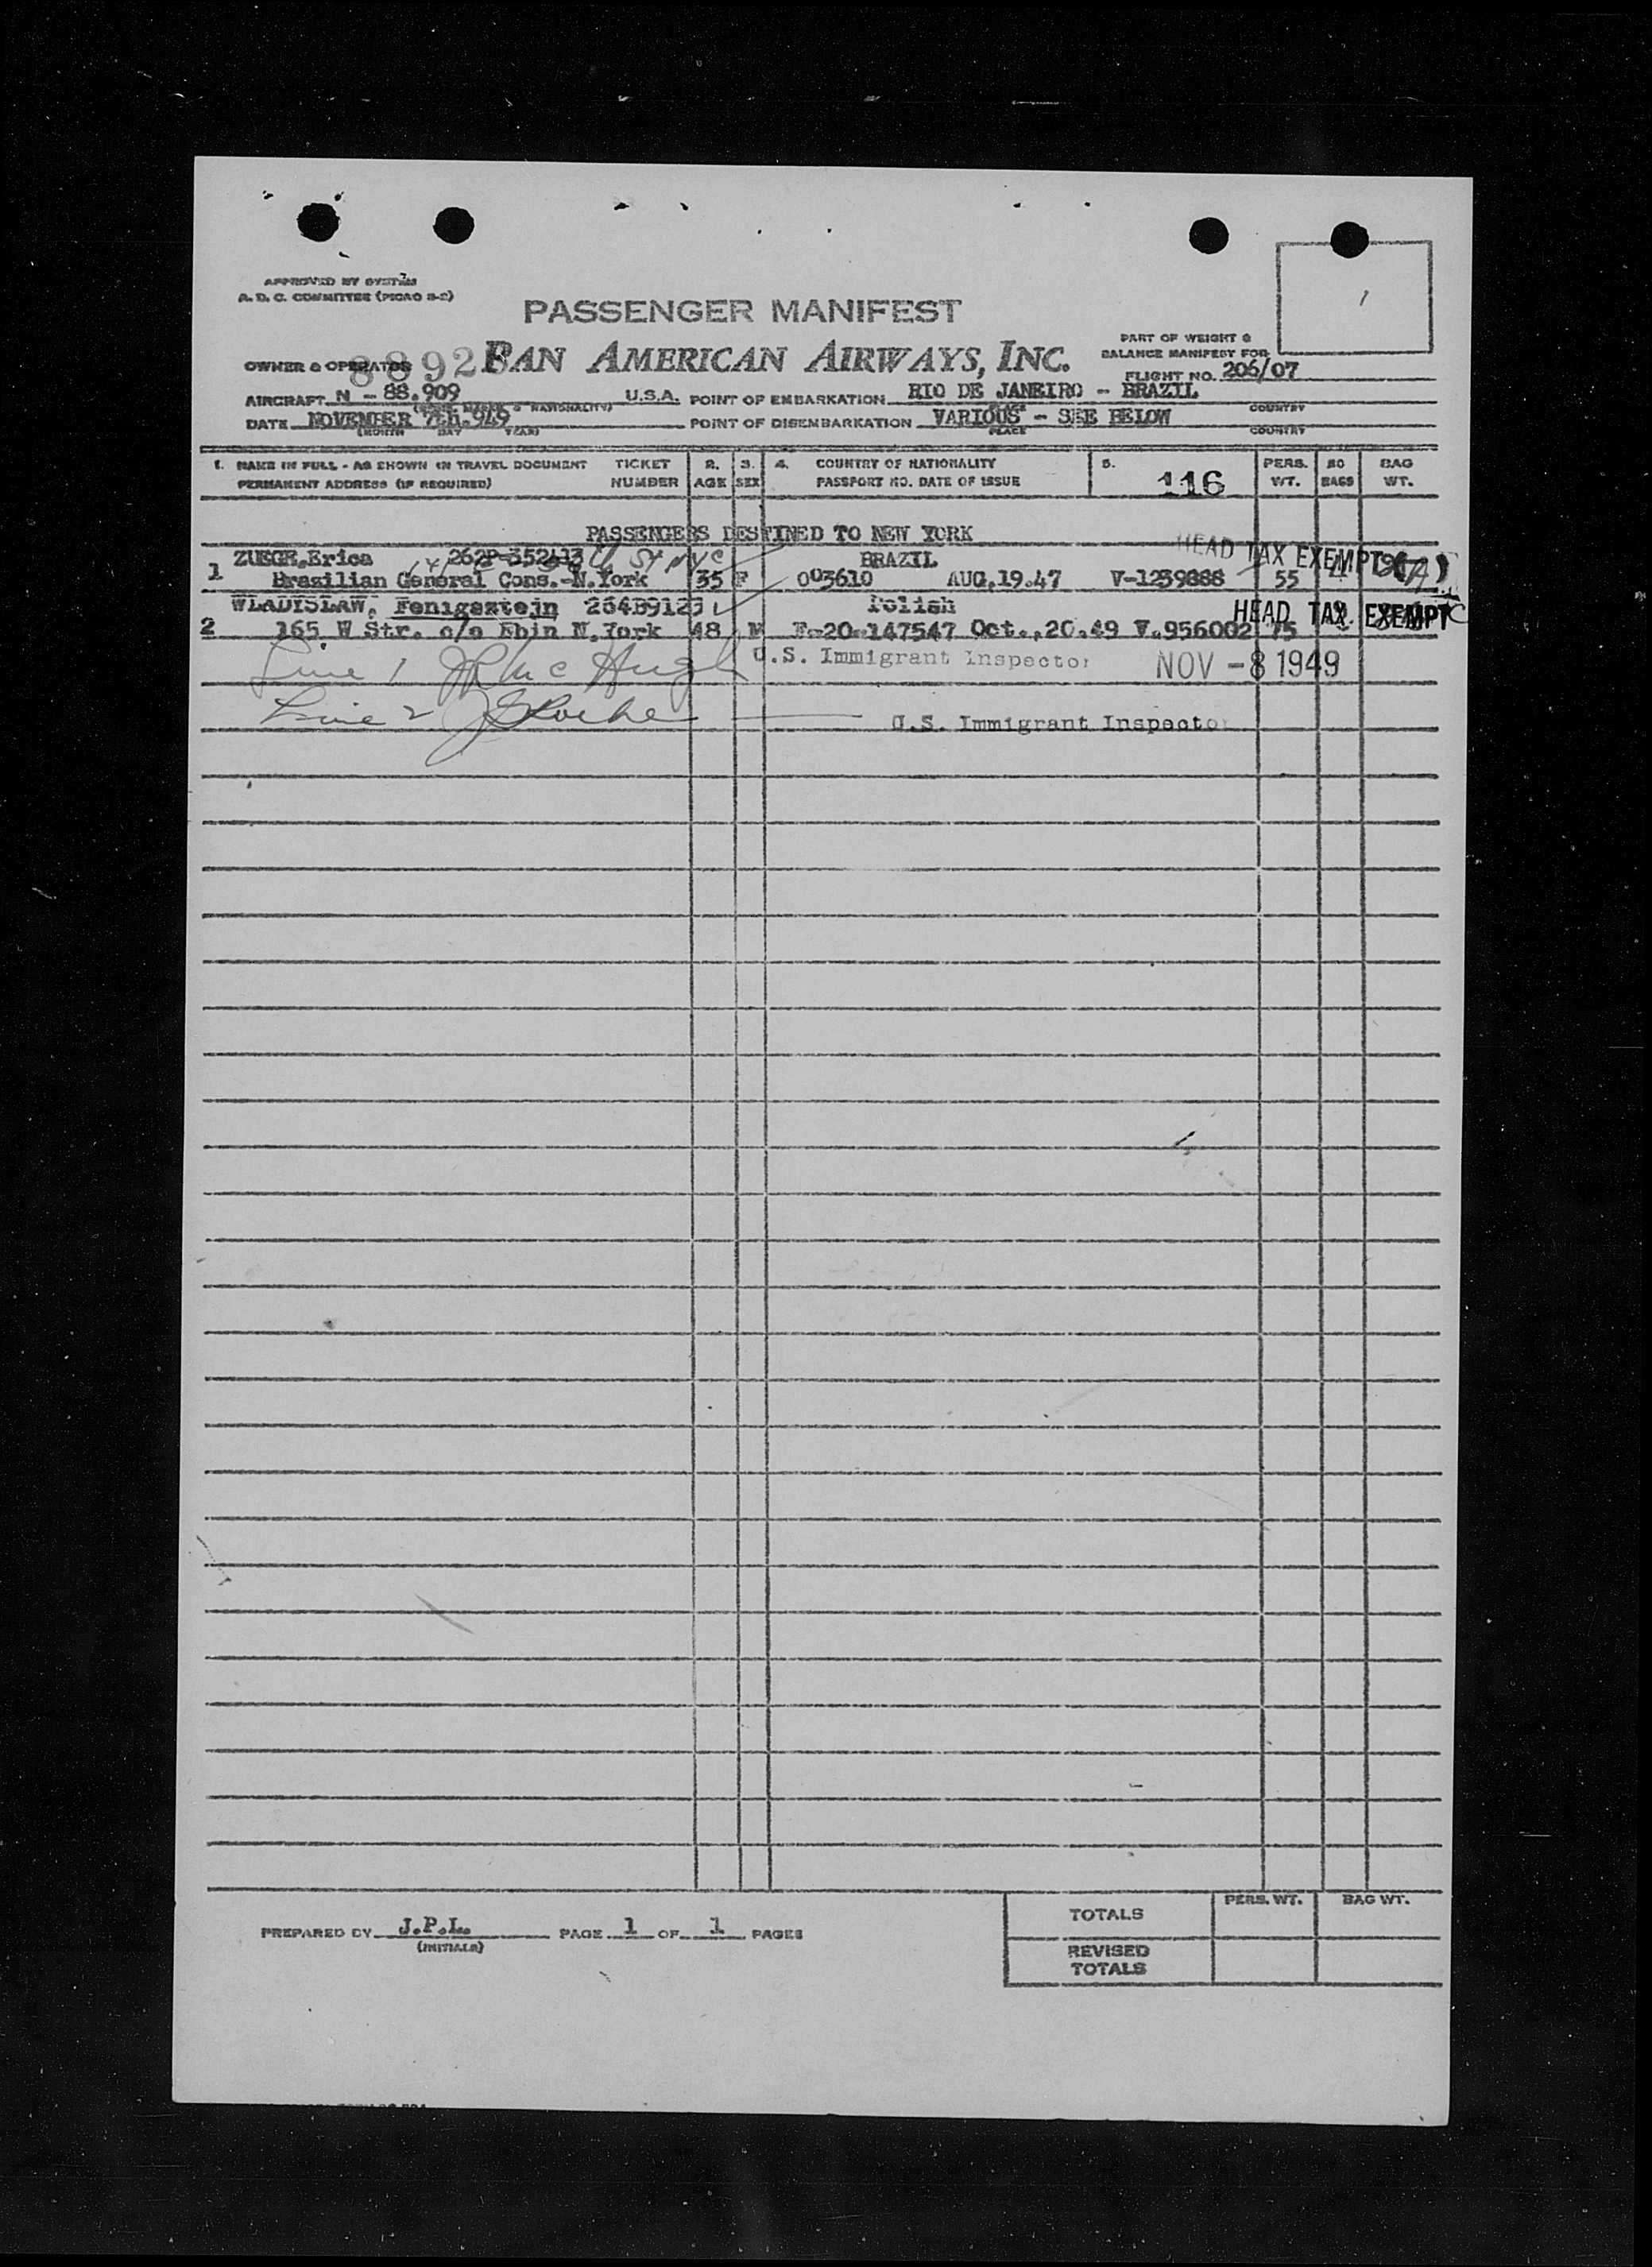 APPROVED BY SYSTEM
A. D. C. COMMITTEE (PICAO 3-2)
PASSENGER MANIFEST
1
OWNER & OPERATOR PAN AMERICAN AIRWAYS, INC.
PART OF WEIGHT &
BALANCE MANIFEST FOR
FLIGHT NO. 206/07
AIRCRAFT N - 88.909 U.S.A. POINT OF EMBARKATION RIO DE JANEIRO - BRAZIL
(NATIONALITY) PLACE COUNTRY
DATE NOVEMBER 7th.949 POINT OF DISEMBARKATION VARIOUS - SEE BELOW
(MONTH DAY YEAR) PLACE COUNTRY
1. NAME IN FULL - AS SHOWN IN TRAVEL DOCUMENT TICKET 2. 3. 4. COUNTRY OF NATIONALITY 5. PERS. NO BAG
PERMANENT ADDRESS (IF REQUIRED) NUMBER AGE SEX PASSPORT NO. DATE OF ISSUE 116 WT. BAGS WT.
PASSENGERS DESTINED TO NEW YORK
ZUEGR,Erica BRAZIL HEAD TAX EXEMPT
1 Brazilian General Cons.-N.York 35 F 003610 AUG,19.47 55
WLADISLAW, Fenigsztejn Polish HEAD TAX EXEMPT
2 165 W Str. c/o Ebin N.York 48 M F-20-147547 Oct.,20.49 V.956002 75
Line 1 U.S. Immigrant Inspector NOV -8 1949
Line 2 U.S. Immigrant Inspector
PREPARED BY J.P.L. PAGE 1 OF 1 PAGES
(INITIALS)
PERS. WT. BAG WT.
TOTALS
REVISED
TOTALS